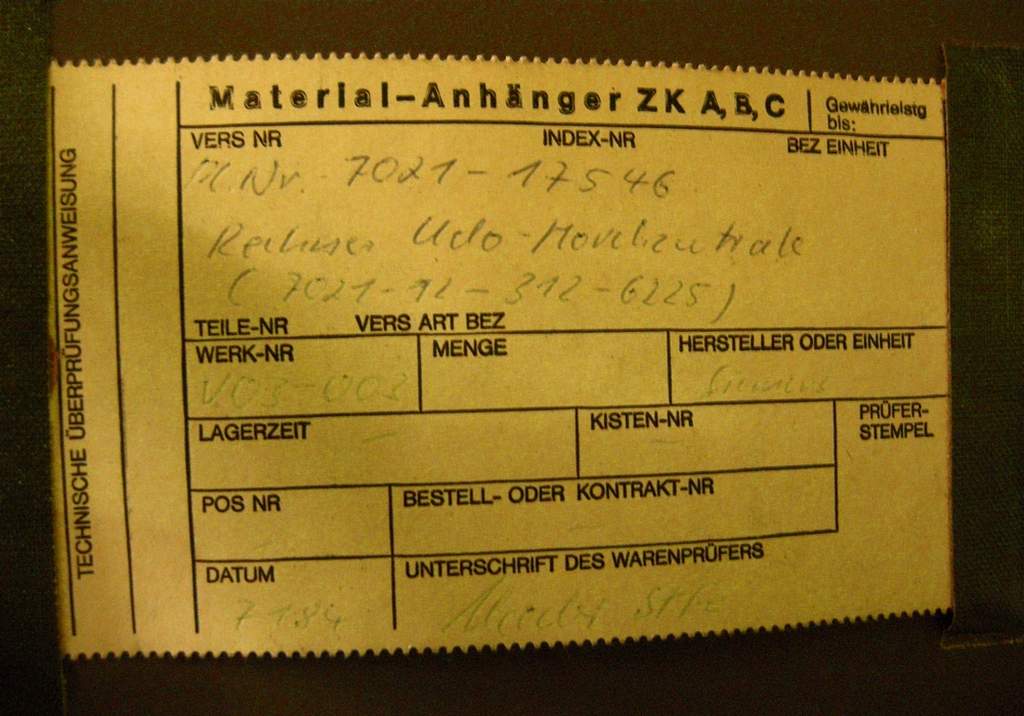 Material-Anhänger ZK A, B, C
Gewährleistg
bis:
VERS NR INDEX-NR BEZ EINHEIT
Pl. Nr. 7021-17546
Rechner
(7021-12-312-6225)
TEILE-NR VERS ART BEZ
WERK-NR MENGE HERSTELLER ODER EINHEIT
V03-003 Siemens
LAGERZEIT KISTEN-NR PRÜFER-
STEMPEL
POS NR BESTELL- ODER KONTRAKT-NR
DATUM UNTERSCHRIFT DES WARENPRÜFERS
7184
TECHNISCHE ÜBERPRÜFUNGSANWEISUNG